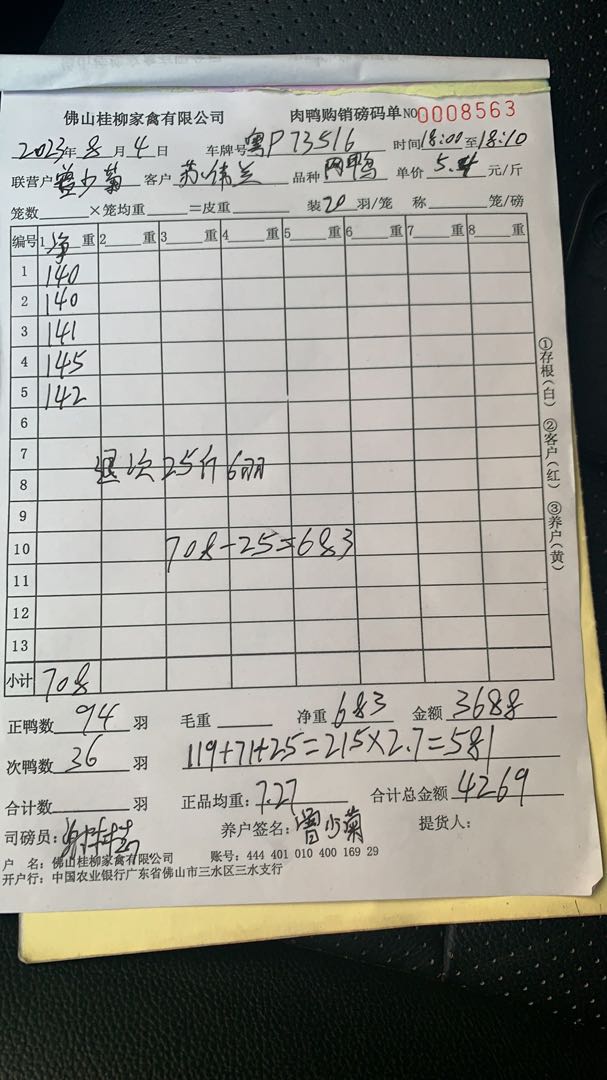 佛山桂柳家禽有限公司 肉鸭购销磅码单 NO 0008563
2023年 8 月 4 日 车牌号 粤P73516 时间 18:00 至 18:10
联营户 曾少菊 客户 苏伟兰 品种 肉鸭 单价 5.4 元/斤
笼数 ×笼均重 =皮重 装 20 羽/笼 称 笼/磅
编号 1 净 重 2 重 3 重 4 重 5 重 6 重 7 重 8 重
1 140
2 140
3 141
4 145
5 142
6
7
退次25斤6只
8
9
10 708-25=683
11
12
13
小计 708
①存根(白) ②客户(红) ③养户(黄)
正鸭数 94 羽 毛重 净重 683 金额 3688
次鸭数 36 羽 119+71+25=215×2.7=581
合计数 羽 正品均重: 7.27 合计总金额 4269
司磅员: 养户签名: 曾少菊 提货人:
户 名: 佛山桂柳家禽有限公司 账号: 444 401 010 400 169 29
开户行: 中国农业银行广东省佛山市三水区三水支行